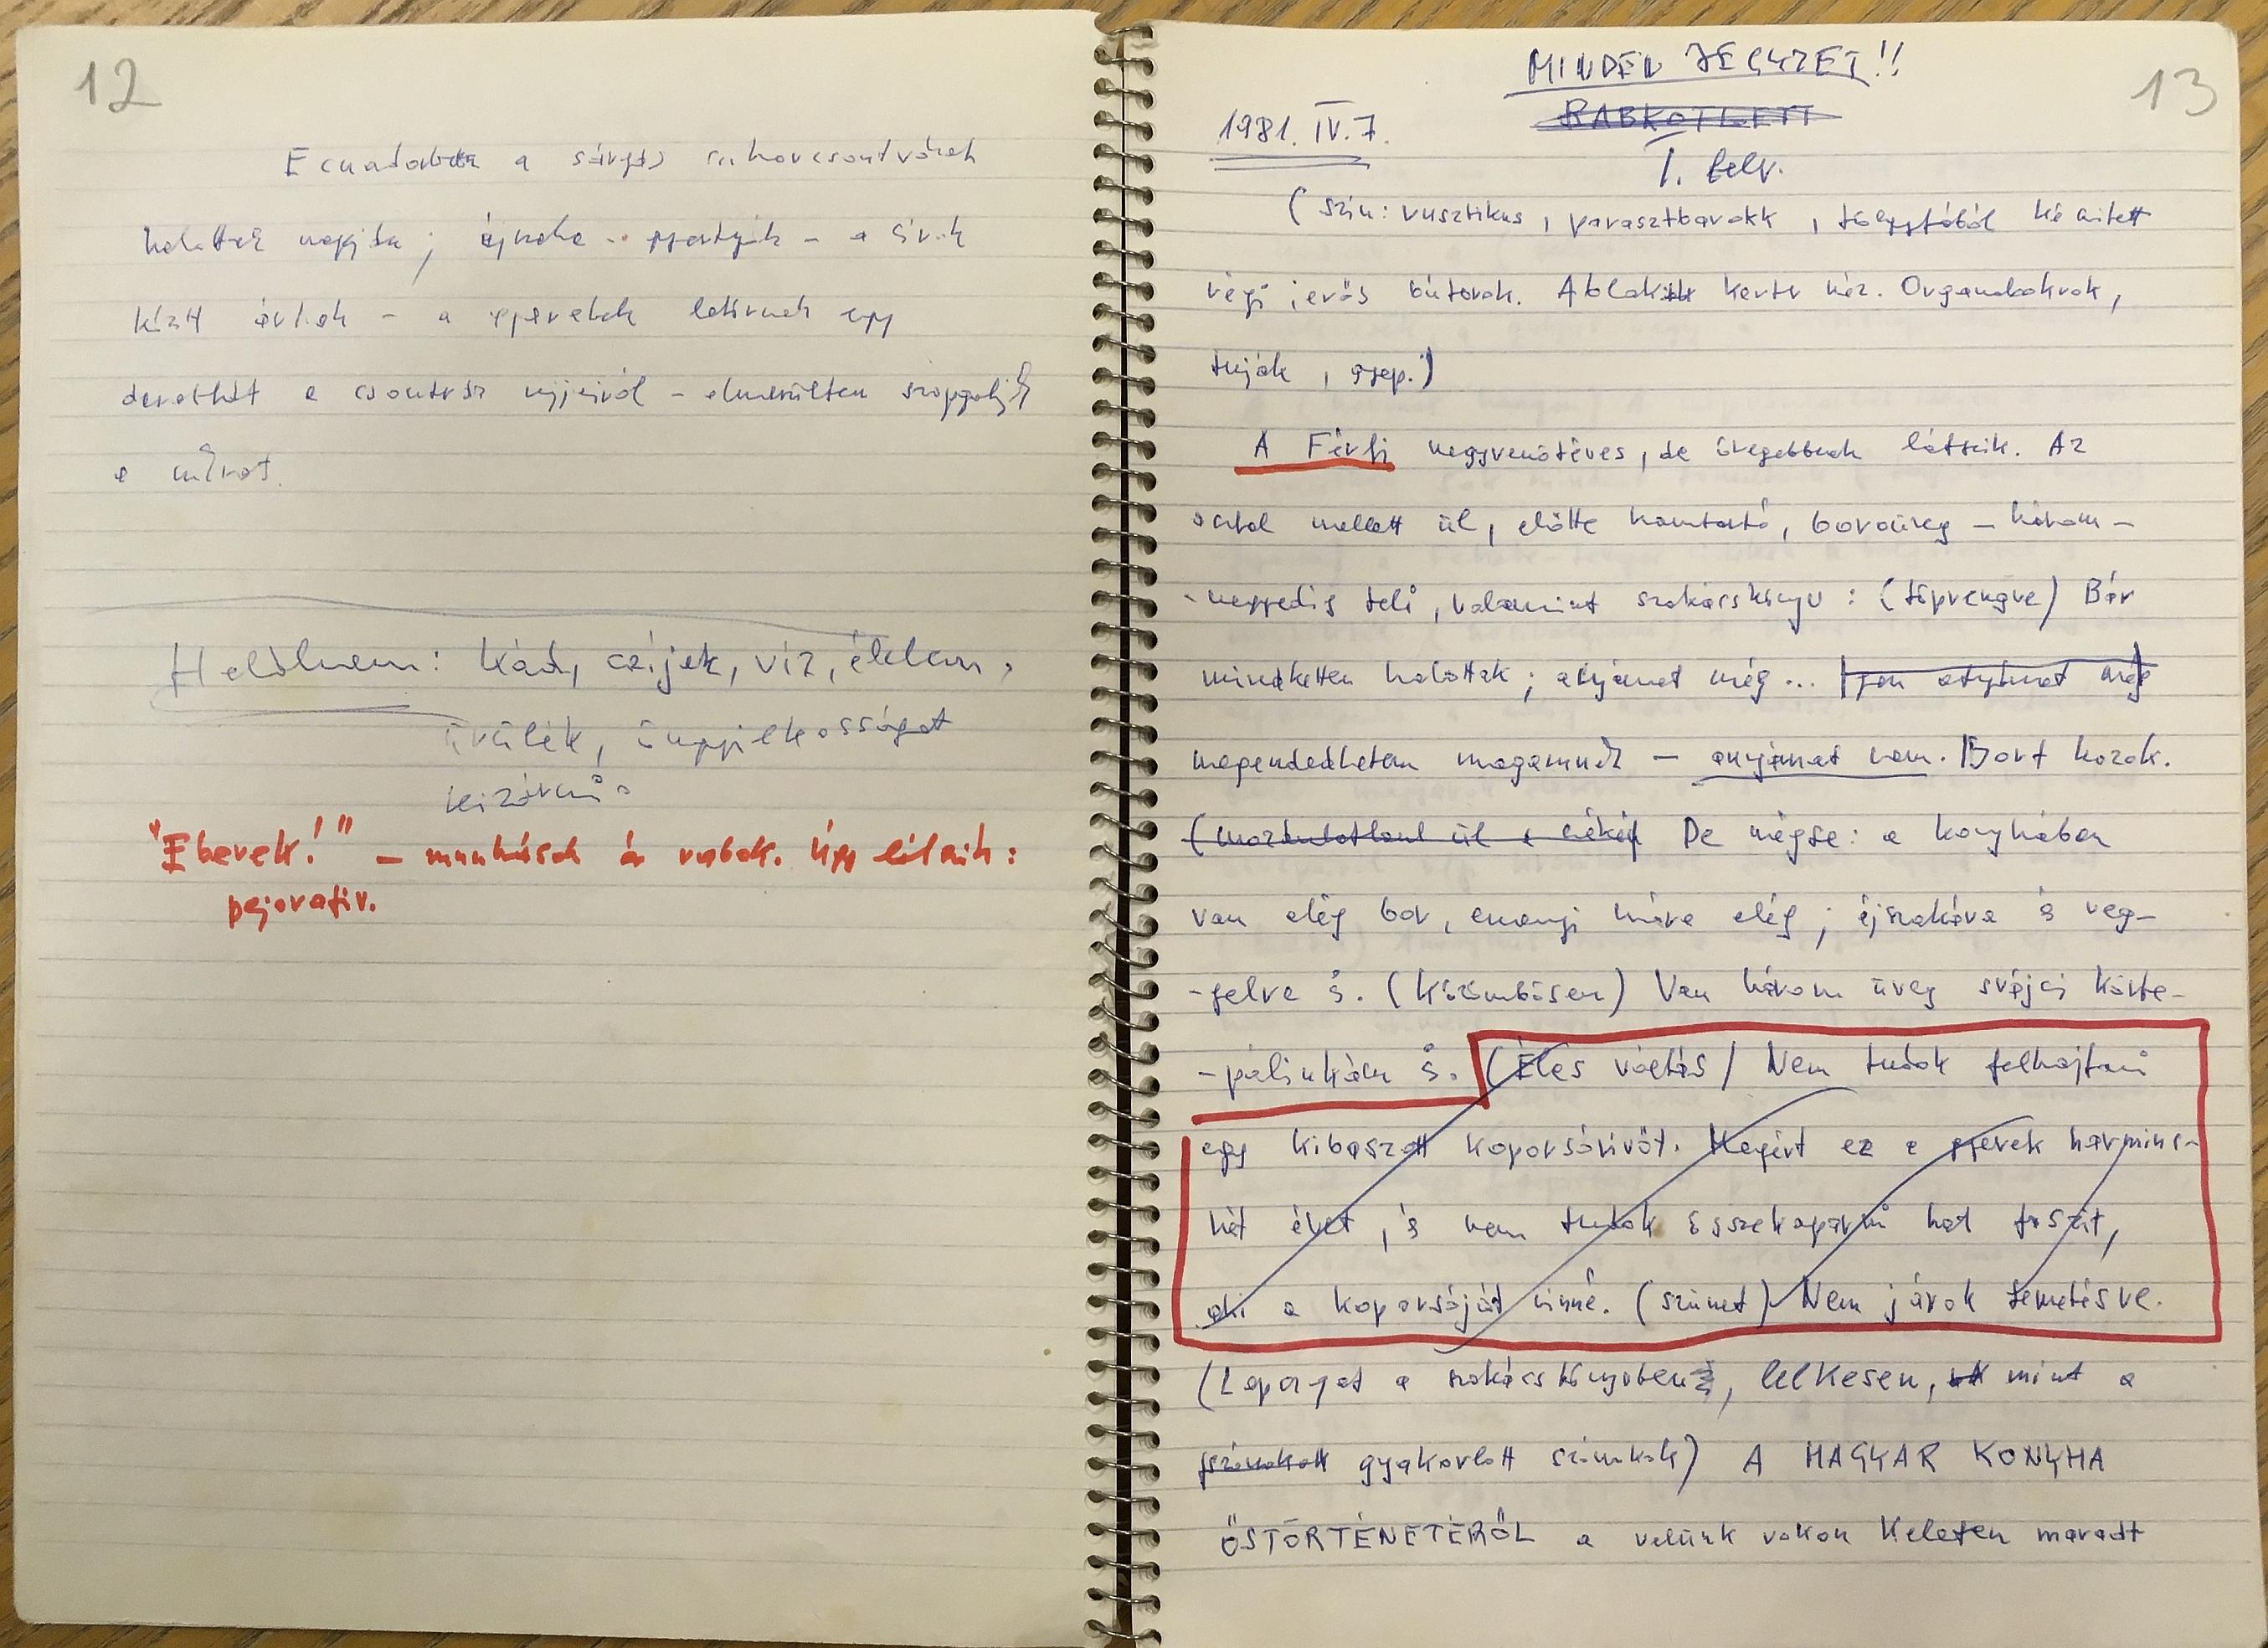 12
Ecuadorban a sárga csontvázak
halottak napján; éjszaka - gyertyák - a sírok
között - a gyerekek letörnek egy
darabkát a csontváz ujjairól - elmerülten szopogatják
a mázat.
Halálnem: kád, szíjak, víz, élelem,
ürülék, öngyilkosságot
kizárni.
"Eberek!" - munkások és rabok. Úgy látszik:
pejoratív.
13
MINDEN JEGYZET!!
RABKOTLETT
1981. IV. 7.
I. felv.
(szín: rusztikus, parasztbarokk, tölgyfából készített
régi, erős bútorok. Ablak kertre néz. Orgonabokrok,
tuják, gyep.)
A Férfi negyvenötéves, de öregebbnek látszik. Az
asztal mellett ül, előtte hamutartó, borosüveg - három-
-negyedig teli, valamint szakácskönyv: (töprengve) Bár
mindketten halottak; anyámat még... atyámat még
megengedhetem magamnak - anyámat nem. Bort hozok.
(mozdulatlanul ül a székén) De mégse: a konyhában
van elég bor, ennyi mára elég; éjszakára is reg-
-gelre is. (Közömbösen) Van három üveg svájci körte-
-pálinkám is. (Éles váltás) Nem tudok felhajtani
egy kibaszott koporsóvivőt. Megért ez a gyerek harminc-
hét évet, és nem tudok összekaparni hat faszit,
aki a koporsóját vinné. (szünet) Nem járok temetésre.
(Lapozgat a szakácskönyvben, lelkesen, mint a
gyakorlott szónokok) A MAGYAR KONYHA
ŐSTÖRTÉNETÉRŐL a velünk rokon Keleten maradt